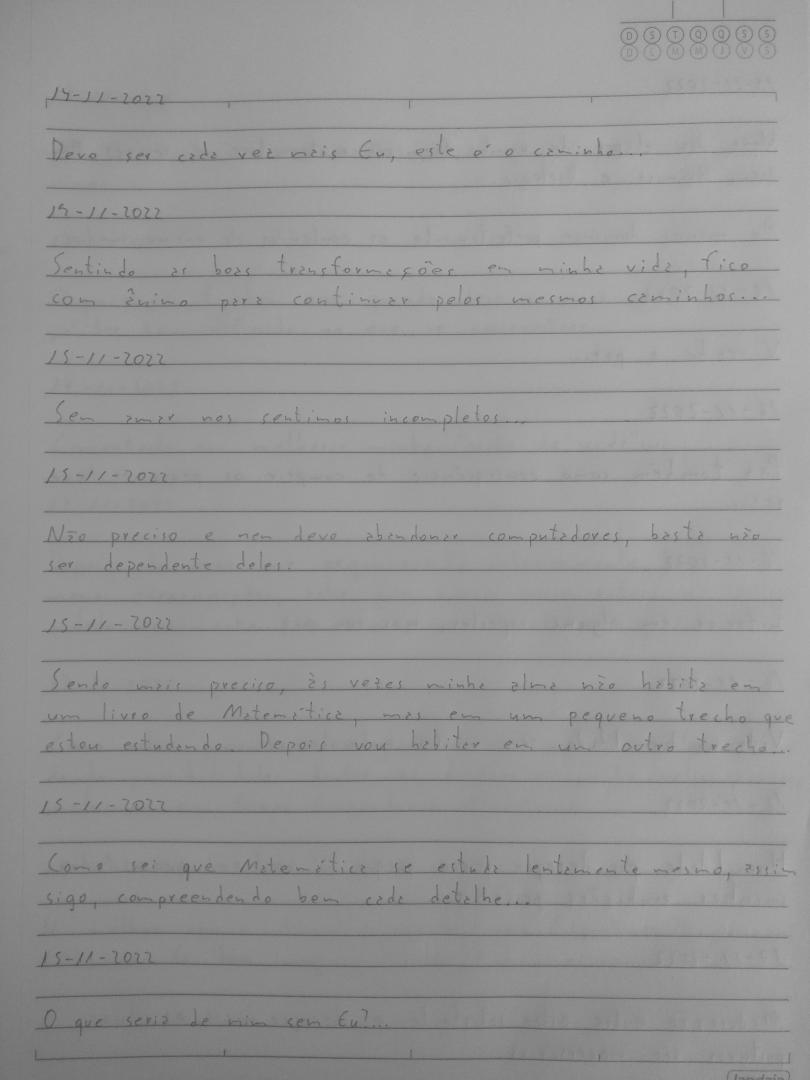 D S T Q Q S S
D L M M J V S
14-11-2022
Devo ser cada vez mais Eu, este é o caminho...
14-11-2022
Sentindo as boas transformações em minha vida, fico
com ânimo para continuar pelos mesmos caminhos...
15-11-2022
Sem amar nos sentimos incompletos...
15-11-2022
Não preciso e nem devo abandonar computadores, basta não
ser dependente deles.
15-11-2022
Sendo mais preciso, às vezes minha alma não habita em
um livro de Matemática, mas em um pequeno trecho que
estou estudando. Depois vou habitar em um outro trecho...
15-11-2022
Como sei que Matemática se estuda lentamente mesmo, assim
sigo, compreendendo bem cada detalhe...
15-11-2022
O que seria de mim sem Eu?...